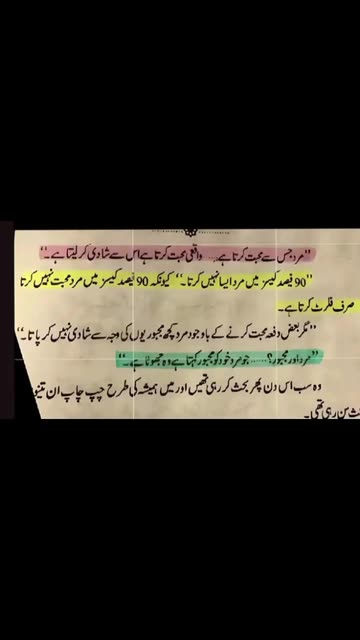 ’’مرد جس سے محبت کرتا ہے..... واقعی محبت کرتا ہے اس سے شادی کر لیتا ہے۔‘‘
’’90 فیصد کیسز میں مرد ایسا نہیں کرتا۔‘‘ کیونکہ 90 فیصد کیسز میں مرد محبت نہیں کرتا
صرف فلرٹ کرتا ہے۔
’’مگر بعض دفعہ محبت کرنے کے باوجود مرد کچھ مجبوریوں کی وجہ سے شادی نہیں کر پاتا۔‘‘
’’مرد اور مجبور؟...... جو مرد خود کو مجبور کہتا ہے وہ جھوٹا ہے۔‘‘
وہ سب اس دن پھر بحث کر رہی تھیں اور میں ہمیشہ کی طرح چپ چاپ ان
سن رہی تھی۔